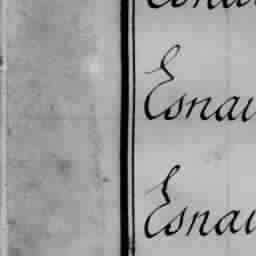 Esnau
Esnau